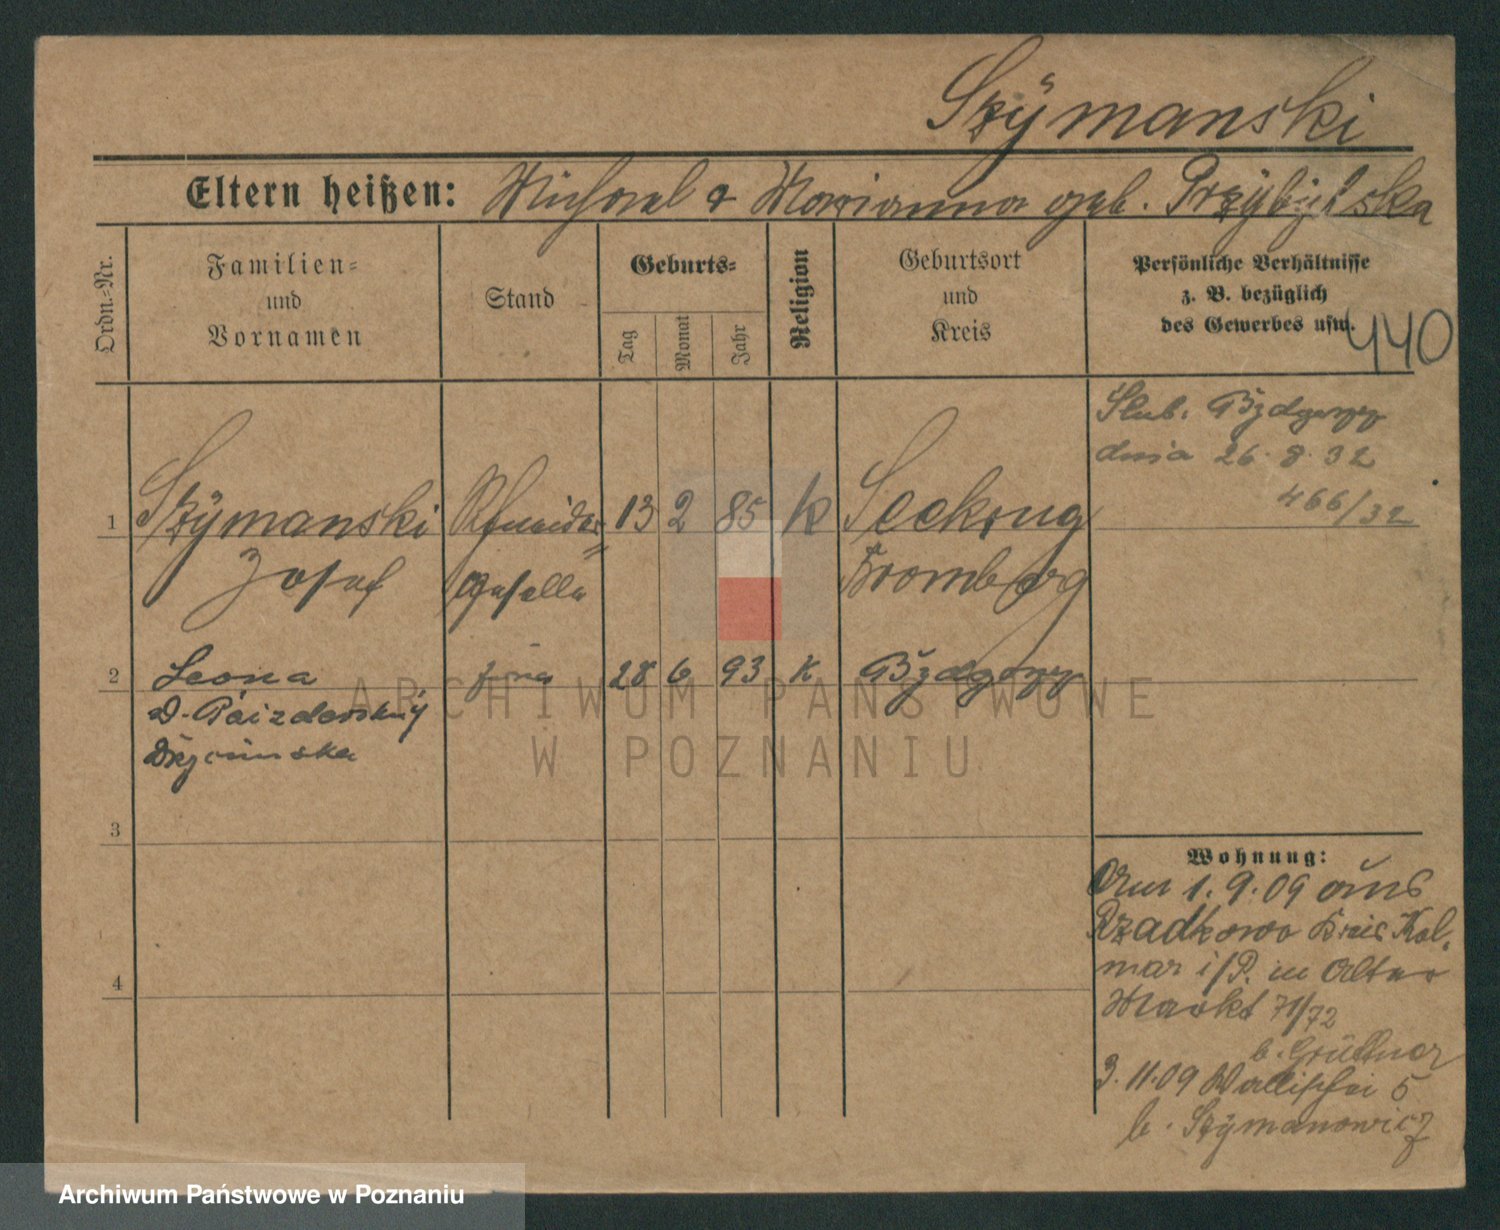 Szÿmanski
Eltern heißen: Michael & Marianna geb. Przÿbÿlska
Ordn.-Nr.
Familien-
und
Vornamen
Stand
Geburts-
Tag
Monat
Jahr
Religion
Geburtsort
und
Kreis
Persönliche Verhältnisse
z. B. bezüglich
des Gewerbes usw.
440
Ślub. Bydgoszcz
dnia 26.8.32
466/32
1 Szÿmanski Schneider= 13 2 85 k
Josef Geselle
Bromberg
2 Leona żona 28 6 93 k Bydgoszcz
D.
ARCHIWUM PAŃSTWOWE
W POZNANIU
3
4
Wohnung:
Am 1.9.09 aus
Rzadkowo Kreis Kol-
mar i/P. in Alter
Markt 71/72
b. Grüttner
3.11.09 Wallischei 5
b. Szÿmanowicz
Archiwum Państwowe w Poznaniu